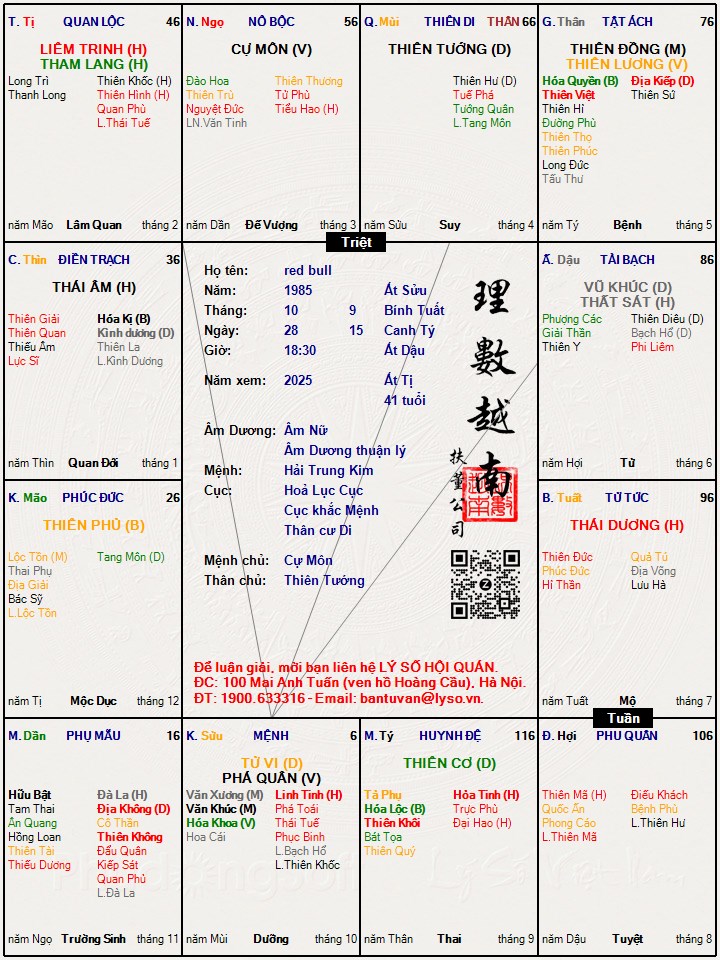 T. Tị QUAN LỘC 46
LIÊM TRINH (H)
THAM LANG (H)
Long Trì Thiên Khốc (H)
Thanh Long Thiên Hình (H)
Quan Phù
L.Thái Tuế
năm Mão Lâm Quan tháng 2
N. Ngọ NÔ BỘC 56
CỰ MÔN (V)
Đào Hoa Thiên Thương
Thiên Trù Tử Phù
Nguyệt Đức Tiểu Hao (H)
LN.Văn Tinh
năm Dần Đế Vượng tháng 3
Q. Mùi THIÊN DI THÂN 66
THIÊN TƯỚNG (D)
Thiên Hư (D)
Tuế Phá
Tướng Quân
L.Tang Môn
năm Sửu Suy tháng 4
G. Thân TẬT ÁCH 76
THIÊN ĐỒNG (M)
THIÊN LƯƠNG (V)
Hóa Quyền (B) Địa Kiếp (D)
Thiên Việt Thiên Sứ
Thiên Hỉ
Đường Phù
Thiên Thọ
Thiên Phúc
Long Đức
Tấu Thư
năm Tý Bệnh tháng 5
Triệt
C. Thìn ĐIỀN TRẠCH 36
THÁI ÂM (H)
Thiên Giải Hóa Kị (B)
Thiên Quan Kình dương (D)
Thiếu Âm Thiên La
Lực Sĩ L.Kình Dương
năm Thìn Quan Đới tháng 1
Họ tên: red bull
Năm: 1985 Ất Sửu
Tháng: 10 9 Bính Tuất
Ngày: 28 15 Canh Tý
Giờ: 18:30 Ất Dậu
Năm xem: 2025 Ất Tị
41 tuổi
Âm Dương: Âm Nữ
Âm Dương thuận lý
Mệnh: Hải Trung Kim
Cục: Hoả Lục Cục
Cục khắc Mệnh
Thân cư Di
Mệnh chủ: Cự Môn
Thân chủ: Thiên Tướng
理數越南
扶董公司
Z
Để luận giải, mời bạn liên hệ LÝ SỐ HỘI QUÁN.
ĐC: 100 Mai Anh Tuấn (ven hồ Hoàng Cầu), Hà Nội.
ĐT: 1900.633316 - Email: bantuvan@lyso.vn.
Ấ. Dậu TÀI BẠCH 86
VŨ KHÚC (D)
THẤT SÁT (H)
Phượng Các Thiên Diêu (D)
Giải Thần Bạch Hổ (D)
Thiên Y Phi Liêm
năm Hợi Tử tháng 6
K. Mão PHÚC ĐỨC 26
THIÊN PHỦ (B)
Lộc Tồn (M) Tang Môn (D)
Thai Phụ
Địa Giải
Bác Sỹ
L.Lộc Tồn
năm Tị Mộc Dục tháng 12
B. Tuất TỬ TỨC 96
THÁI DƯƠNG (H)
Thiên Đức Quả Tú
Phúc Đức Địa Võng
Hỉ Thần Lưu Hà
năm Tuất Mộ tháng 7
Tuần
M. Dần PHỤ MẪU 16
Hữu Bật Đà La (H)
Tam Thai Địa Không (D)
Ân Quang Cô Thần
Hồng Loan Thiên Không
Thiên Tài Đẩu Quân
Thiếu Dương Kiếp Sát
Quan Phủ
L.Đà La
năm Ngọ Trường Sinh tháng 11
K. Sửu MỆNH 6
TỬ VI (D)
PHÁ QUÂN (V)
Văn Xương (M) Linh Tinh (H)
Văn Khúc (M) Phá Toái
Hóa Khoa (V) Thái Tuế
Hoa Cái Phục Binh
L.Bạch Hổ
L.Thiên Khốc
năm Mùi Dưỡng tháng 10
M. Tý HUYNH ĐỆ 116
THIÊN CƠ (D)
Tả Phụ Hỏa Tinh (H)
Hóa Lộc (B) Trực Phù
Thiên Khôi Đại Hao (H)
Bát Tọa
Thiên Quý
năm Thân Thai tháng 9
Đ. Hợi PHU QUÂN 106
Thiên Mã (H) Điếu Khách
Quốc Ấn Bệnh Phù
Phong Cáo L.Thiên Hư
L.Thiên Mã
năm Dậu Tuyệt tháng 8